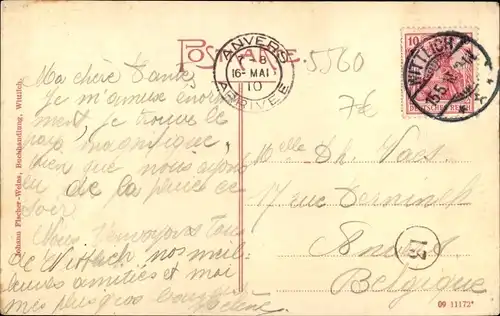 Postkarte
ANVERS
7-8
16 MAI
10
ARRIVEE
5560
7€
10
DEUTSCHES REICH
WITTLICH
Ma chère Tante,
Je m'amuse énormé-
ment, je trouve le
pays magnifique,
bien que nous ayons
eu de la pluie ce
soir.
Nous t'envoyons tous
de Wittlich nos meil-
leures amitiés et moi
mes plus gros baisers
Hélène
Melle Th. Vaes
17 rue
Anvers
Belgique
13
Johann Fischer-Weins, Buchhandlung, Wittlich.
09 11172*